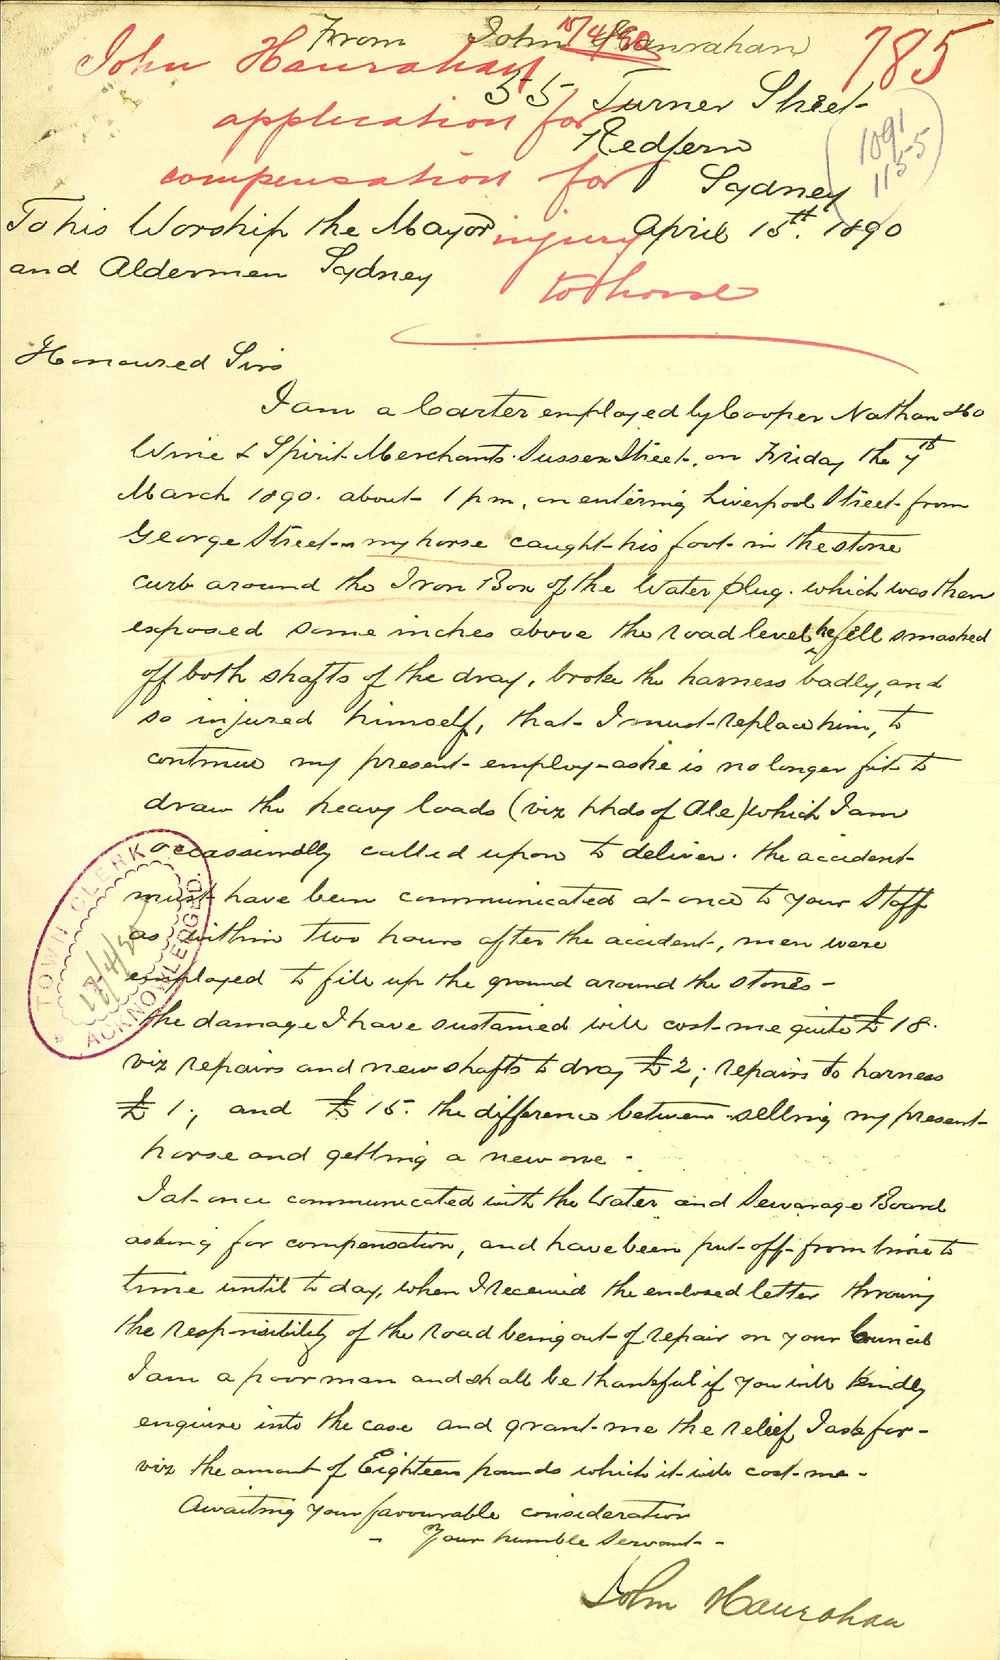 From John Hanrahan
15/4/90
785
John Hanrahan
55 Turner Street
application for
Redfern
1091
115-5
compensation for
Sydney
To his Worship the Mayor
injury
April 15th. 1890
and Aldermen Sydney
to horse
Honoured Sirs
I am a Carter employed by Cooper Nathan & Co
Wine & Spirit Merchants. Sussex Street, on Friday the 7th
March 1890. about 1 p m, on entering Liverpool Street from
George Street - my horse caught his foot in the stone
curb around the Iron Box of the Water plug. which was then
exposed some inches above the road level, he fell smashed
off both shafts of the dray, broke the harness badly, and
so injured himself, that I must replace him, to
continue my present employ - as he is no longer fit to
draw the heavy loads (viz hhds of Ale) which I am
occassionally called upon to deliver. the accident
must have been communicated at once to your Staff
as within two hours after the accident, men were
employed to fill up the ground around the stones -
the damage I have sustained will cost me quite £18.
viz repairs and new shafts to dray £2; repairs to harness
£1; and £15. the difference between selling my present
horse and getting a new one -
I at once communicated with the Water and Sewarage Board
asking for compensation, and have been put off from time to
time until to day, when I received the enclosed letter throwing
the responsibility of the road being out of repair on your Council
I am a poor man and shall be thankful if you will kindly
enquire into the case and grant me the relief I ask for -
viz the amount of Eighteen pounds which it will cost me -
Awaiting your favourable consideration
- Your humble Servant -
John Hanrahan
TOWN CLERK
17/4/90
ACKNOWLEDGED.